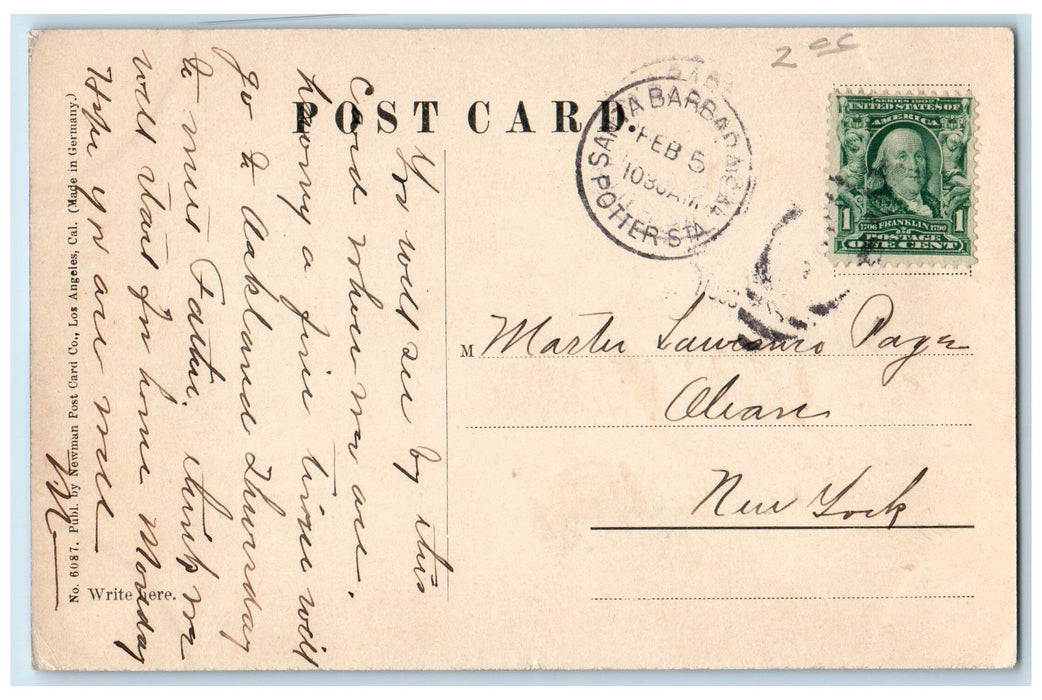 2 00
POST CARD.
SANTA BARBARA, CAL.
FEB 5
1030AM
POTTER STA.
SERIES 1902
UNITED STATES OF
AMERICA
1 1706 FRANKLIN 1790 1
POSTAGE
ONE CENT
You will see by this
Card where we are.
having a fine time will
go to Oakland Thursday
to meet Father. think we
will start for home Monday
Hope you are well
M
No. 6087. Publ. by Newman Post Card Co., Los Angeles, Cal. (Made in Germany.)
Write here.
M Master Lawrence Page
Olean
New York